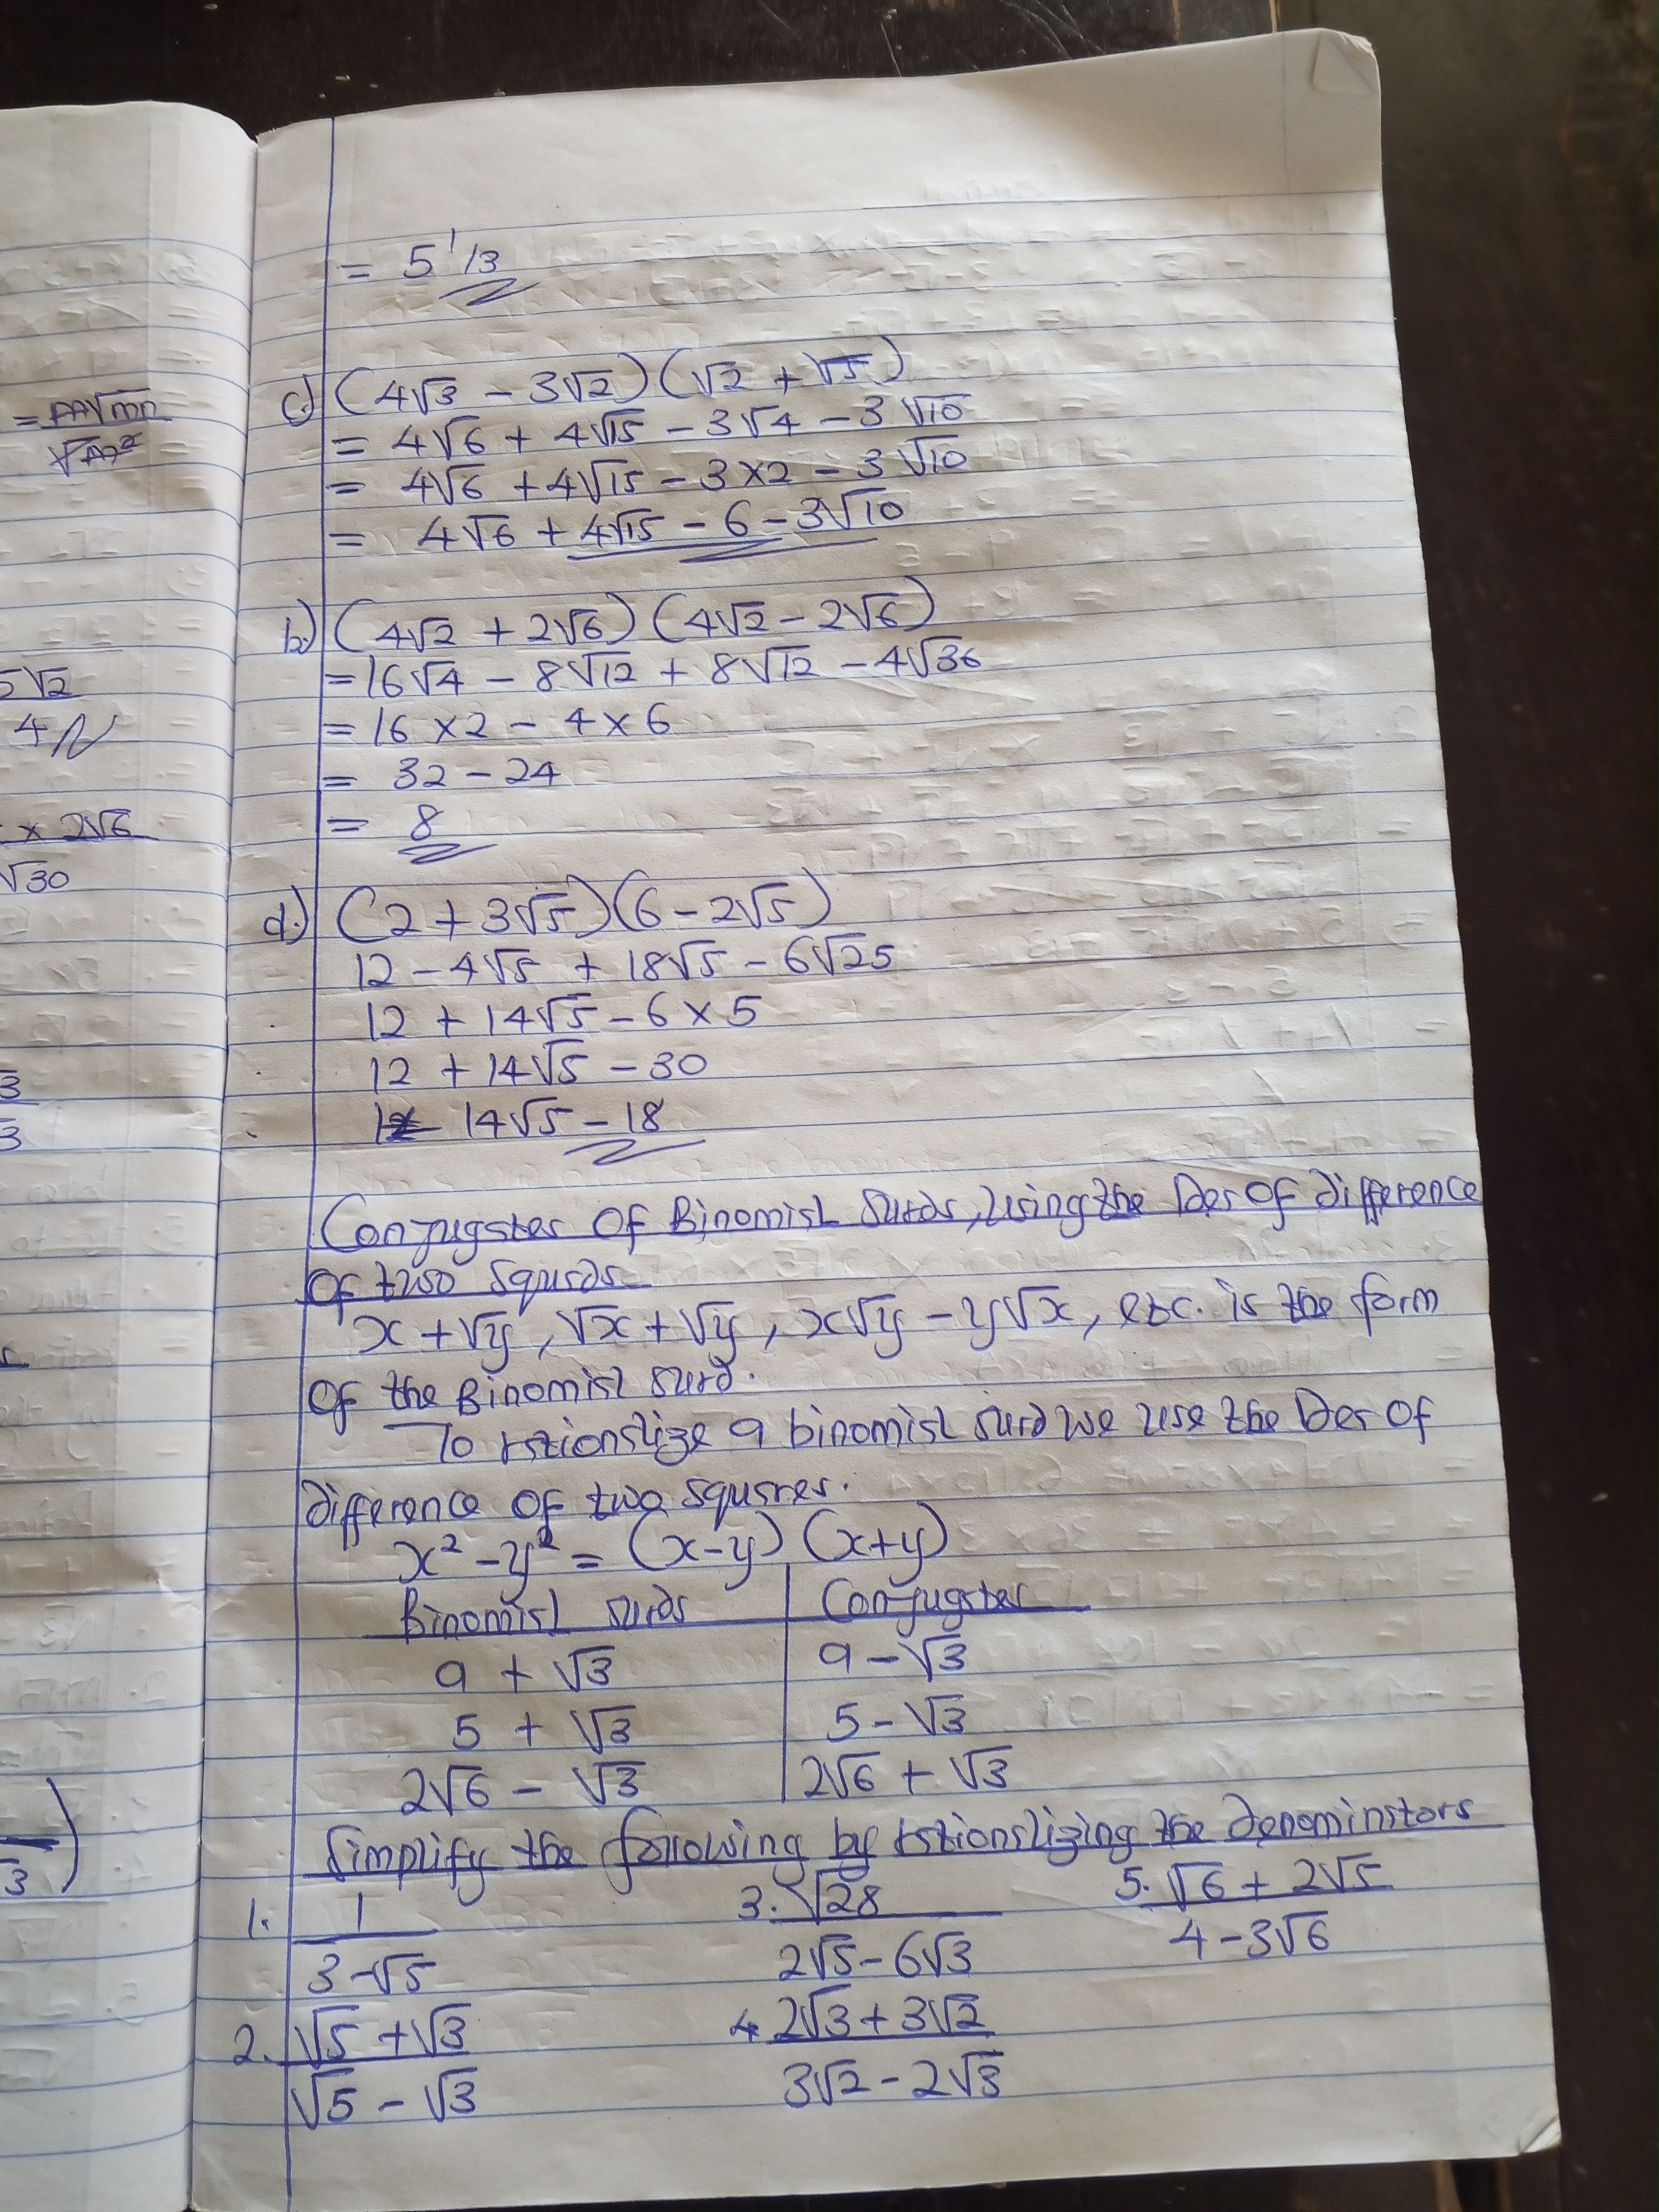 = 5 1/3
= m√mn
√m²
c) (4√3 - 3√2)(√2 + √5)
= 4√6 + 4√15 - 3√4 - 3√10
= 4√6 + 4√15 - 3×2 - 3√10
= 4√6 + 4√15 - 6 - 3√10
b.) (4√2 + 2√6)(4√2 - 2√6)
= 16√4 - 8√12 + 8√12 - 4√36
= 16 × 2 - 4 × 6
= 32 - 24
= 8
5√2
4
× 2√6
√30
d.) (2 + 3√5)(6 - 2√5)
12 - 4√5 + 18√5 - 6√25
12 + 14√5 - 6 × 5
12 + 14√5 - 30
14√5 - 18
Conjugates Of Binomial Surds, Using the Des Of difference
Of two Squrds
x + √y, √x + √y, x√y - y√x, etc. is the form
Of the Binomial Surd.
To rationalize a binomial surd we use the Des Of
difference Of two squares.
x² - y² = (x-y)(x+y)
Binomial surds Conjugates
9 + √3 9 - √3
5 + √3 5 - √3
2√6 - √3 2√6 + √3
Simplify the following by rationalizing the denominators
1. 1 3. √28 5. √6 + 2√5
3-√5 2√5 - 6√3 4 - 3√6
2. √5 + √3 4. 2√3 + 3√2
√5 - √3 3√2 - 2√3